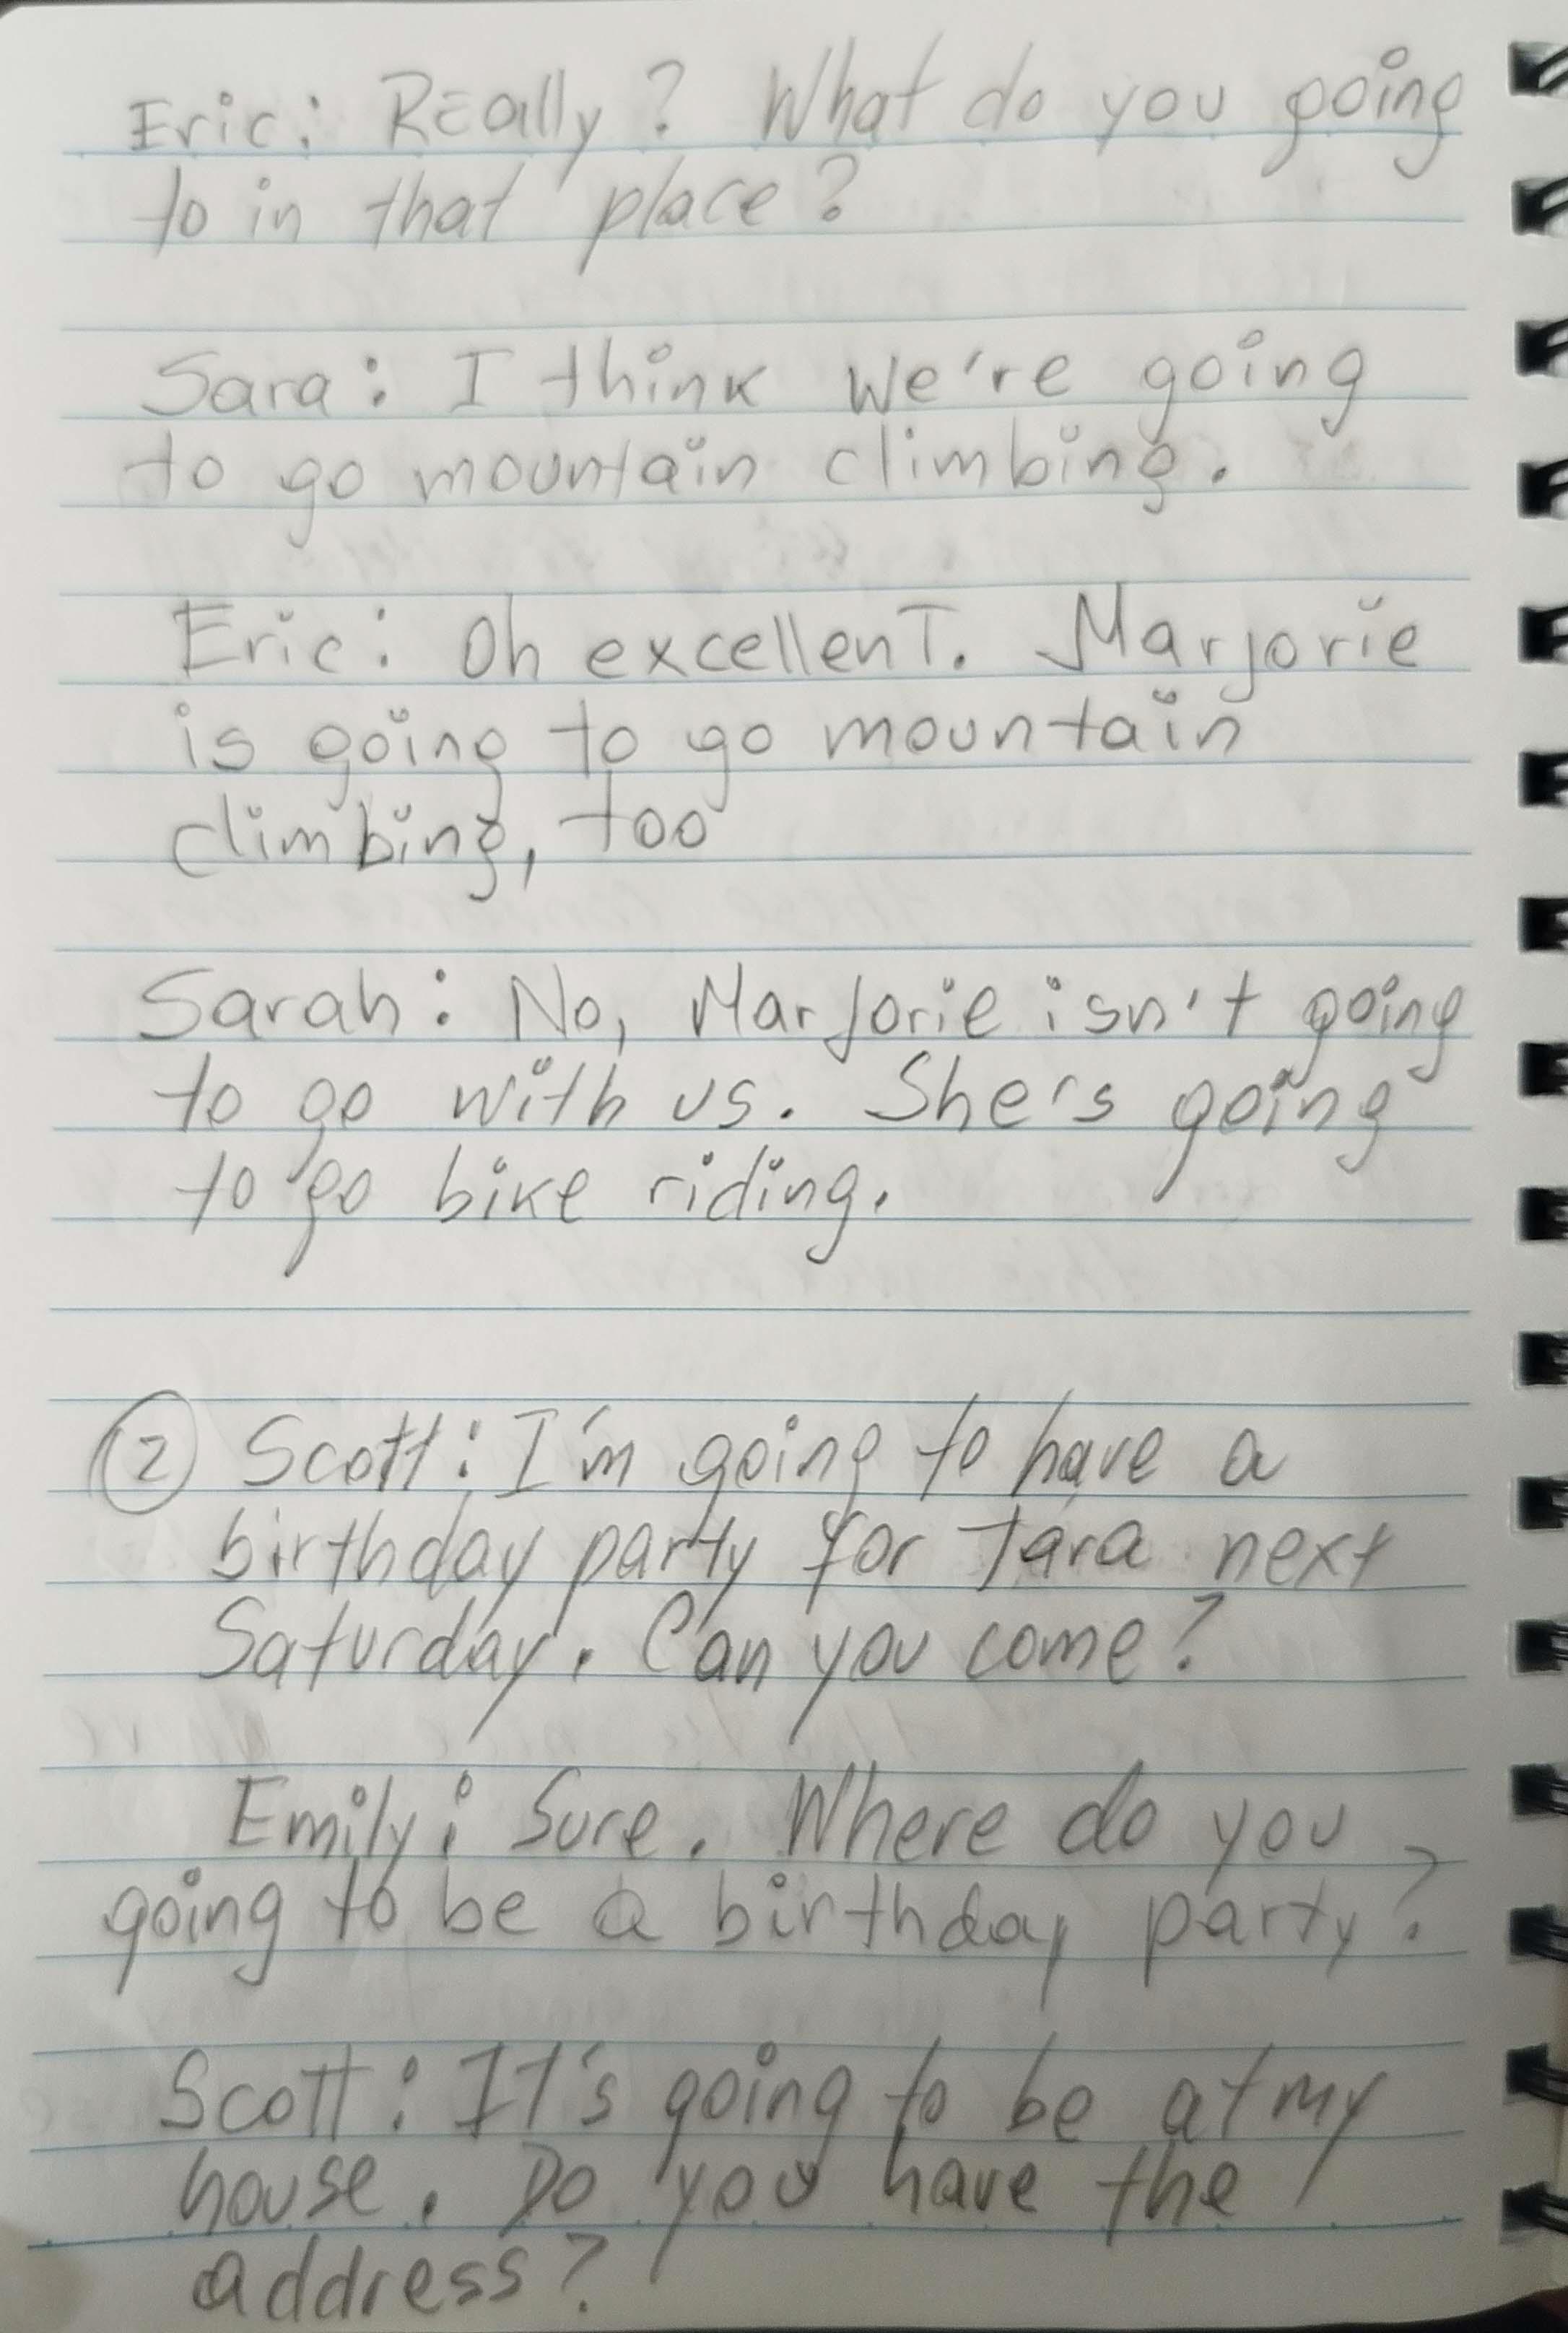 Eric: Really? What do you going
to in that place?
Sara: I think we're going
to go mountain climbing.
Eric: Oh excellent. Marjorie
is going to go mountain
climbing, too
Sarah: No, Marjorie isn't going
to go with us. She's going
to go bike riding.
2 Scott: I'm going to have a
birthday party for Tara next
Saturday. Can you come?
Emily: Sure. Where do you
going to be a birthday party?
Scott: It's going to be at my
house. Do you have the
address?